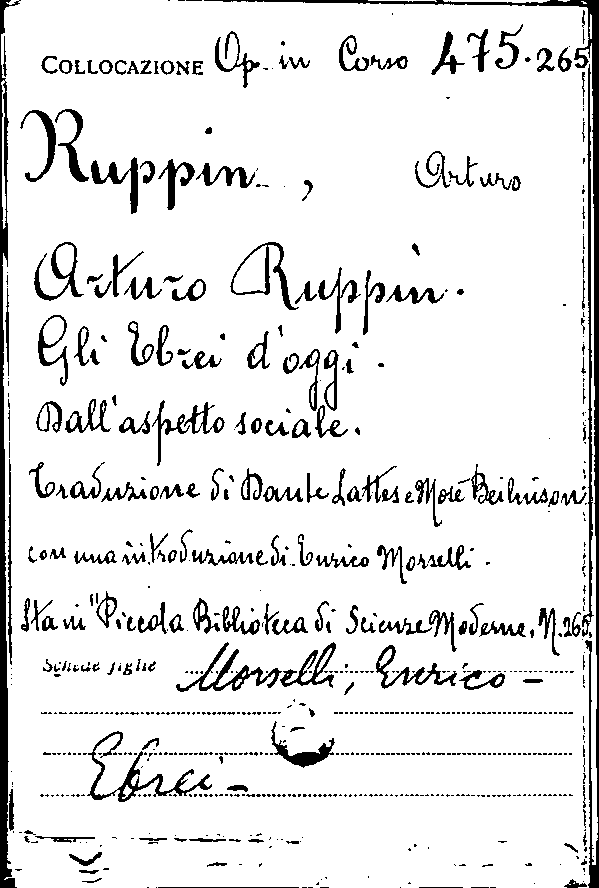 COLLOCAZIONE Op. in Corso 475.265
Ruppin , Arturo
Arturo Ruppin.
Gli Ebrei d'oggi.
Dall'aspetto sociale.
Traduzione di Dante Lattes e Mosè Beilinson
con una introduzione di Enrico Morselli.
Sta in "Piccola Biblioteca di Scienze Moderne, N. 265.
Schede figlie Morselli, Enrico -
Ebrei -